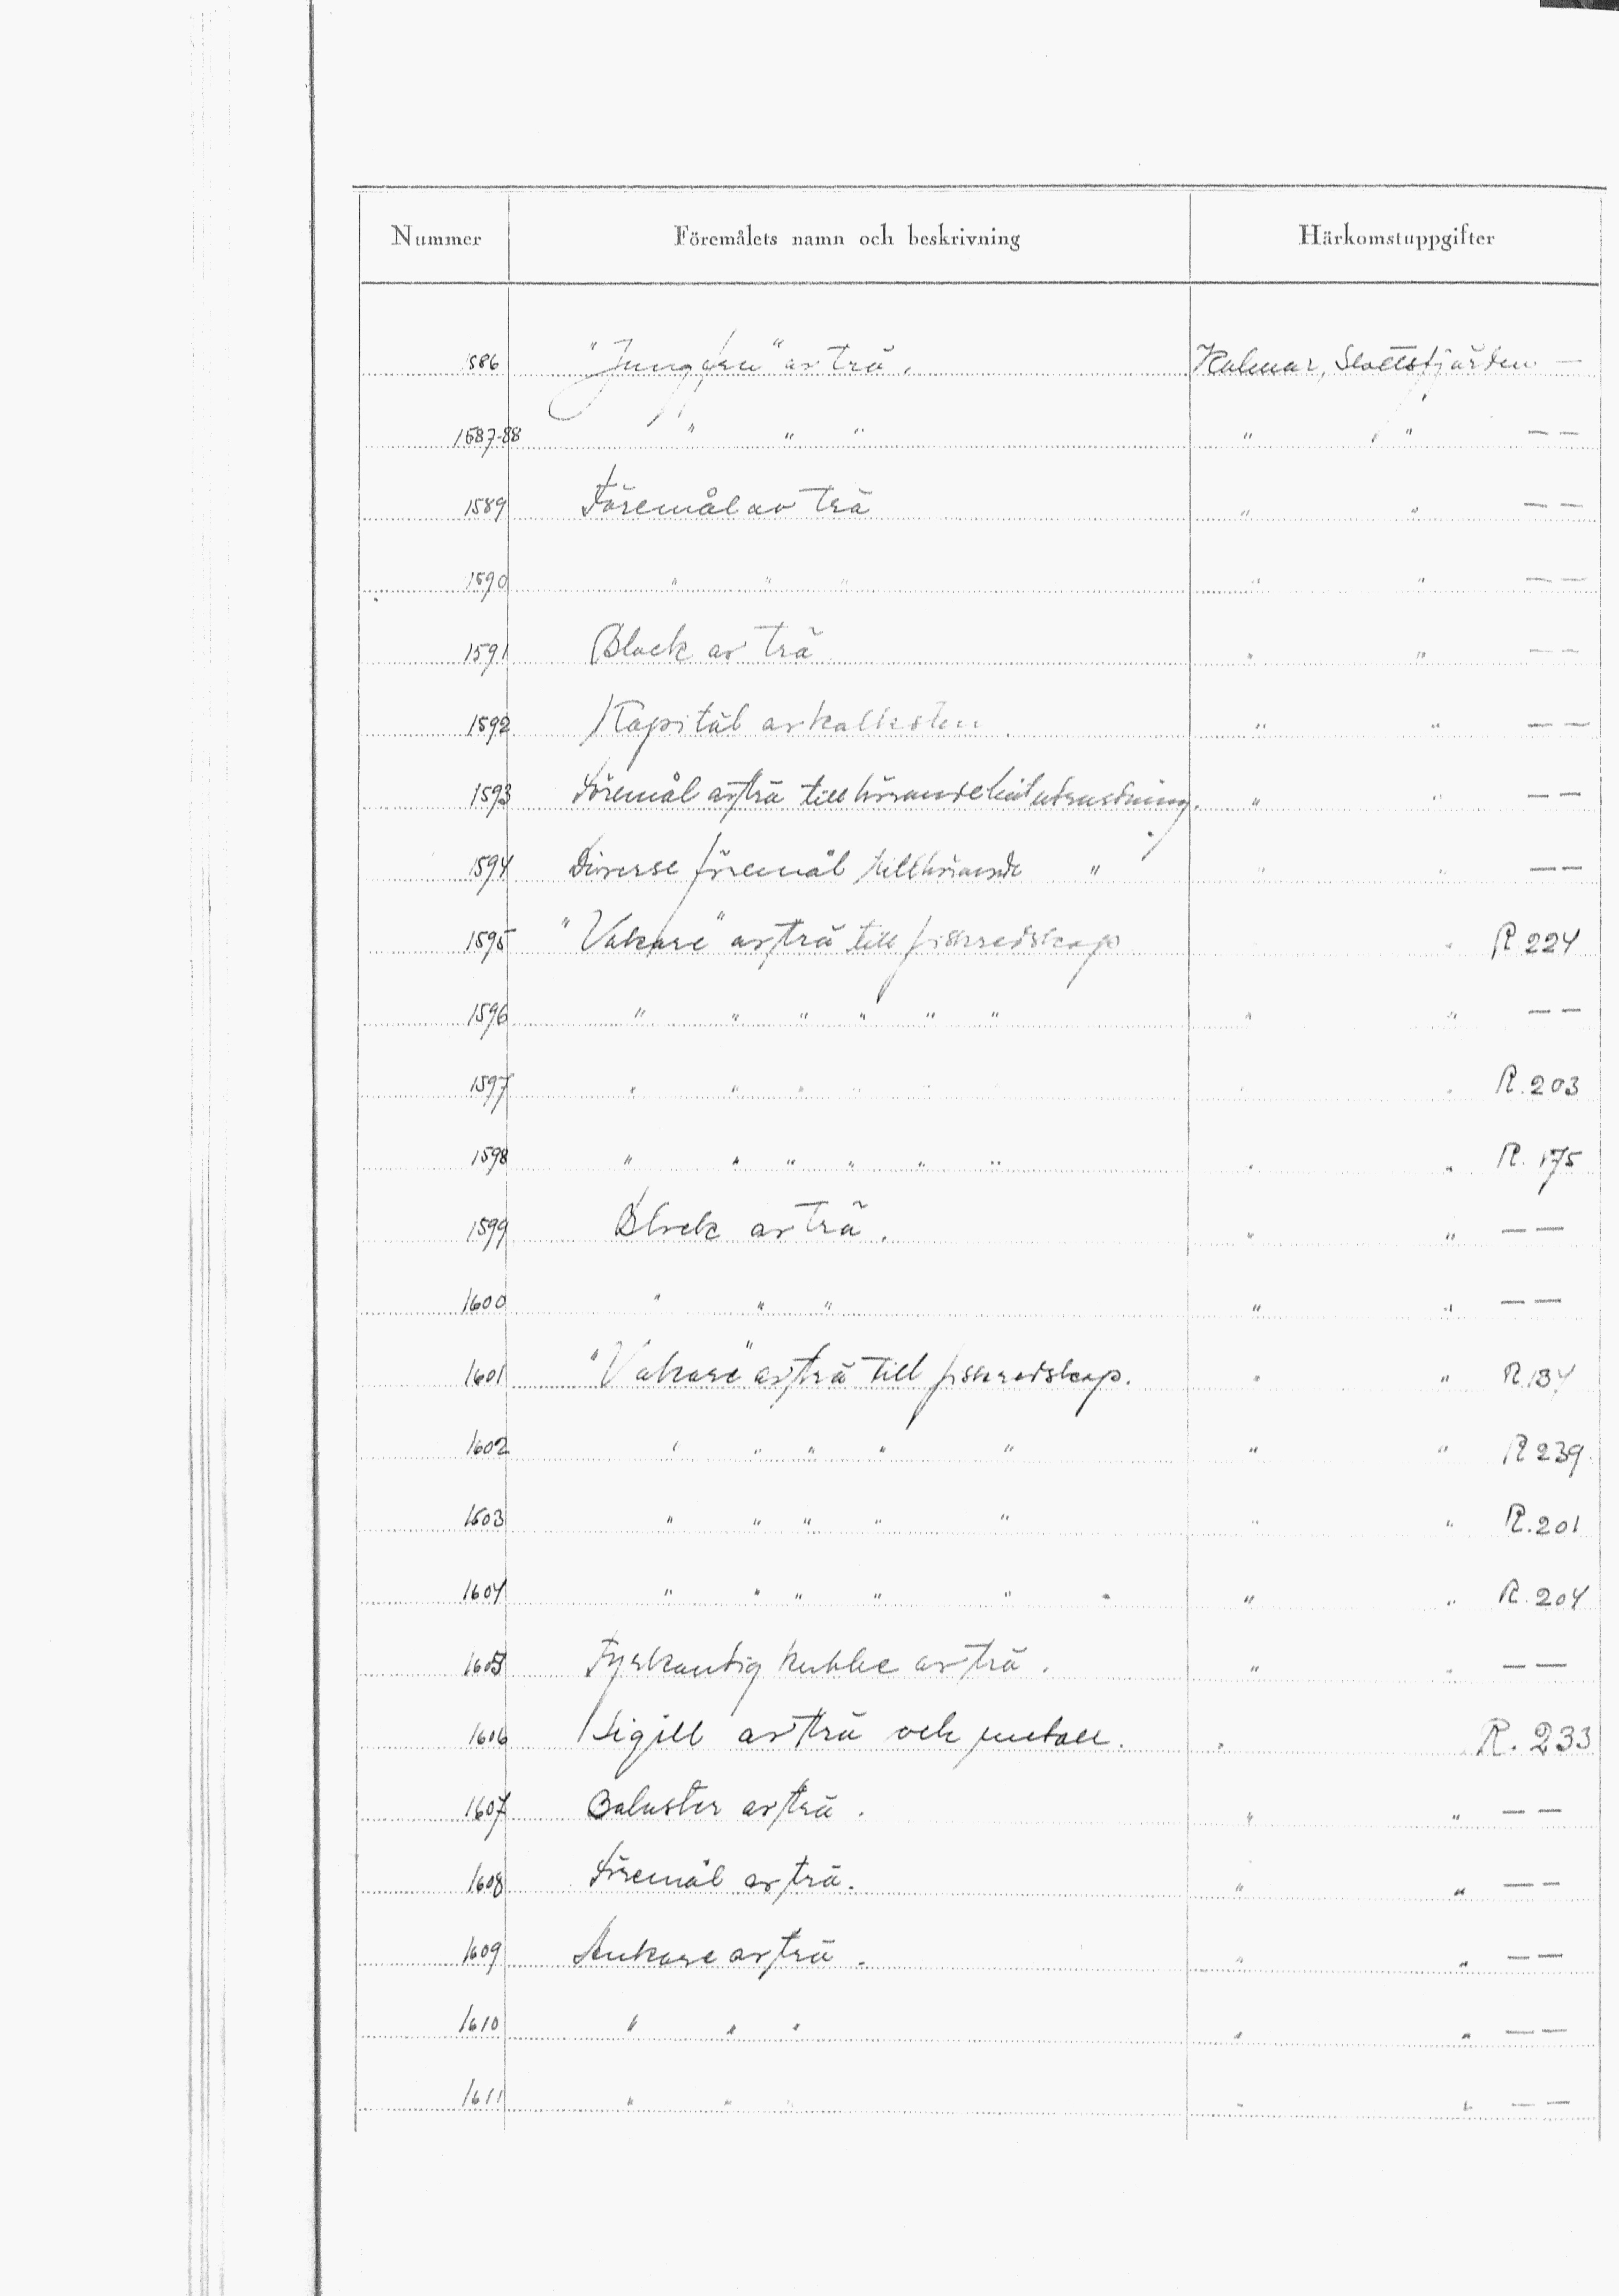 Nummer Föremålets namn och beskrivning Härkomstuppgifter
1586 "Jungfru" av trä. Kalmar, Slottsfjärden —
1587-88 " " " " " — —
1589 Föremål av trä " " — —
1590 " " " " " — —
1591 Block av trä " " — —
1592 Kapitäl av kalksten " " — —
1593 Föremål av trä tillhörande båtutrustning. " " — —
1594 Diverse föremål tillhörande " " " — —
1595 "Vakare" av trä till fiskredskap " R 224
1596 " " " " " " " " — —
1597 " " " " " " " R. 203
1598 " " " " " " " " R. 175
1599 Block av trä. " " — —
1600 " " " " " — —
1601 "Vakare" av trä till fiskredskap. " " R.134
1602 " " " " " " " R 239.
1603 " " " " " " " R. 201
1604 " " " " " " " R. 204
1605 Fyrkantig kubbe av trä. " " — —
1606 Sigill av trä och metall. " R. 233
1607 Baluster av trä. " " — —
1608 Föremål av trä. " " — —
1609 Ankare av trä. " " — —
1610 " " " " " — —
1611 " " " " " — —